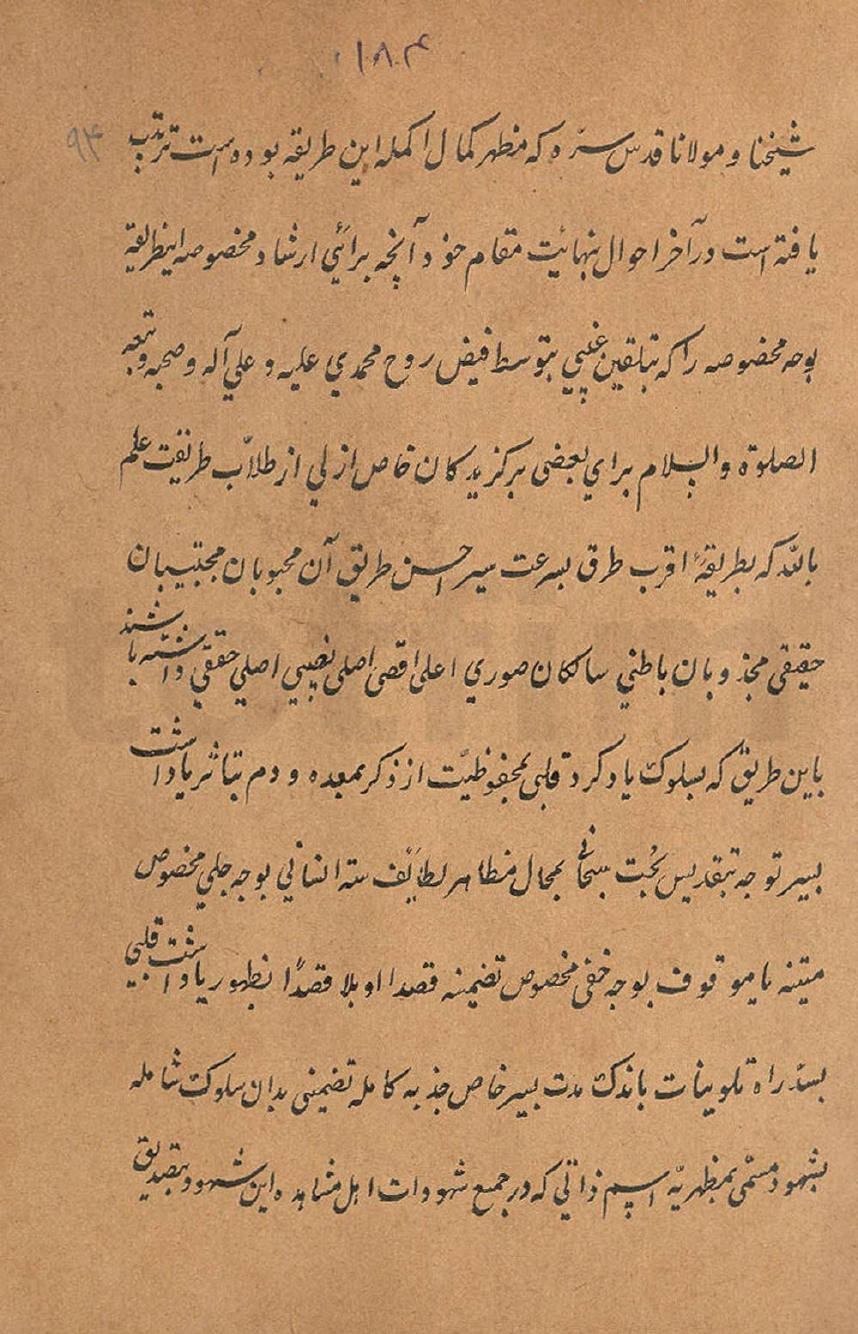 ۱۸۴
۹۴
شیخنا و مولانا قدس سرّه که مظهر کمال اکمله این طریقه بوده است ترتیب
یافته است در آخر احوال بنهائیت مقام خود آنچه برائي ارشاد مخصوصه اینطریقه
بوجه مخصوصه را که بتلقین غیبي بتوسط فیض روح محمدي علیه و علي آله و صحبه و تبعه
الصلوة والسلام براي بعضی برگزیدکان خاص ازلي از طلاّب طریقت علم
بالله که بطریقهٔ اقرب طرق بسرعت سیر احسن طریق آن محبوبان مجتبیان
حقیقی مجذوبان باطني سالکان صوري اعلی اقصی اصلی نصیبي اصلي حقیقي داشته باشند
باین طریق که بسلوک یادکرد قلبی بمحفوظیّت از ذکر بمعده و دم بتاثر یاداشت
بسیر توجه بتقدیس بُحت سبحاني بمجال مظاهر لطایف سته انساني بوجه جلي مخصوص
متینه یا موقوف بوجه خفی مخصوص تضمینه قصدا او بلا قصدًا بظهور یاداشت قلبي
بسدّ راه تلوینات باندک مدت بسیر خاص جذبه کامله تضیمنی بدان سلوک شامله
بشهود مسمّی بمظهریّه اسم ذاتي که در جمیع شهودات اهل مشاهده این شهود بتصدیق